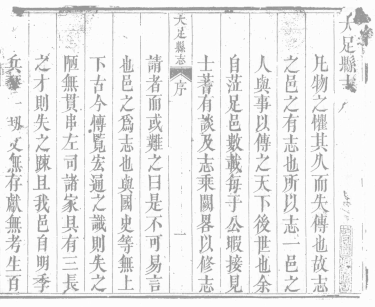 大足縣志
凡物之懼其久而失傳也故志
之邑之有志也所以志一邑之
人與事以傳之天下後世也余
自蒞足邑數載每于公暇接見
士著有談及志乘闕畧以修志
大足縣志
序
一
請者面或難之曰是不可易言
也邑之爲志也與國史等無上
下古今傳覽宏通之識則失之
陋無貫串左司諸家具有三長
之才則失之踈且我邑自明季
兵燹一切文無存獻無考生百